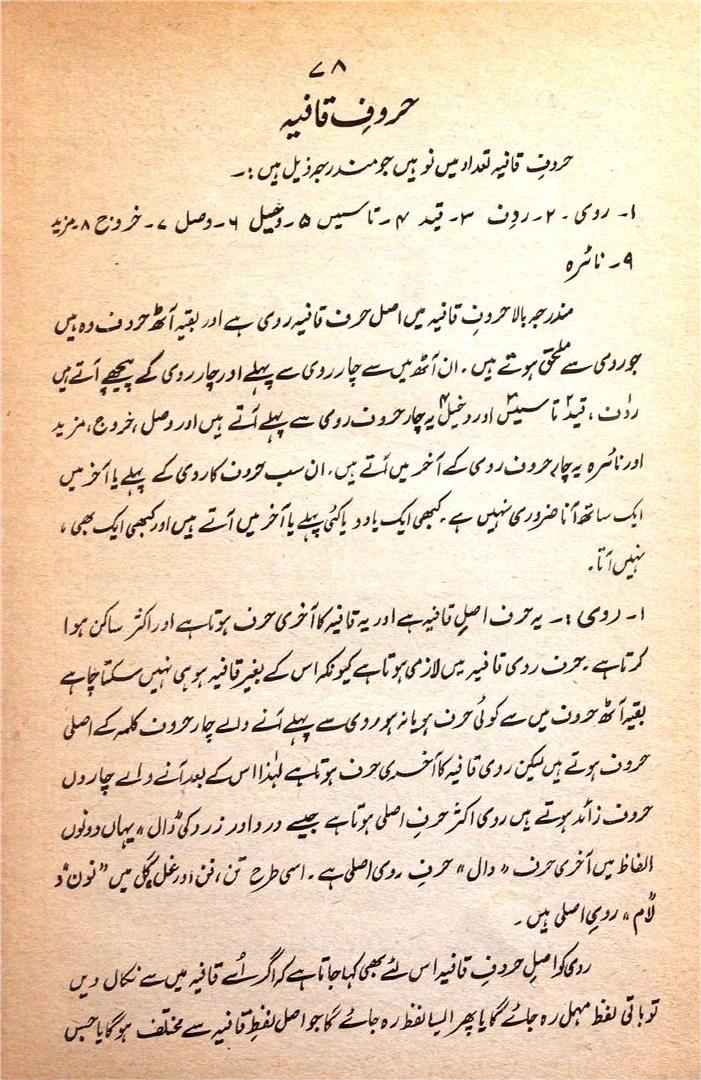 ۷۸
حروفِ قافیہ
حروفِ قافیہ تعداد میں نو ہیں جو مندرجہ ذیل ہیں :۔
۱۔ روی ۔ ۲۔ ردف ۳۔ قید ۴۔ تاسیس ۵۔ دخیل ۶۔ وصل ۷۔ خروج ۸۔ مزید
۹۔ نائرہ
مندرجہ بالا حروفِ قافیہ میں اصل حرف قافیہ روی ہے اور بقیہ آٹھ حروف وہ ہیں
جو روی سے ملحق ہوتے ہیں ۔ ان آٹھ میں سے چار روی سے پہلے اور چار روی کے پیچھے آتے ہیں
ردف۱ ، قید۲ تاسیس۳ اور دخیل۴ یہ چار حروف روی سے پہلے آتے ہیں اور وصل ، خروج ، مزید
اور نائرہ یہ چار حروف روی کے آخر میں آتے ہیں ۔ ان سب حروف کا روی کے پہلے یا آخر میں
ایک ساتھ آنا ضروری نہیں ہے ۔ کبھی ایک یا دو یا کئی پہلے یا آخر میں آتے ہیں اور کبھی ایک بھی ،
نہیں آتا ۔
۱۔ روی :۔ یہ حرف اصلِ قافیہ ہے اور یہ قافیہ کا آخری حرف ہوتا ہے اور اکثر ساکن ہوا
کرتا ہے ۔ حرف روی قافیہ میں لازمی ہوتا ہے کیونکہ اس کے بغیر قافیہ ہو ہی نہیں سکتا چاہے
بقیہ آٹھ حروف میں سے کوئی حرف ہو یا نہ ہو روی سے پہلے آنے والے چار حروف کلمہ کے اصلی
حروف ہوتے ہیں لیکن روی قافیہ کا آخری حرف ہوتا ہے لہٰذا اس کے بعد آنے والے چاروں
حروف زائد ہوتے ہیں روی اکثر حرفِ اصلی ہوتا ہے جیسے درد اور زرد کی "دال" یہاں دونوں
الفاظ میں آخری حرف "دال" حرفِ روی اصلی ہے ۔ اسی طرح تن ، فن اور غل گل میں "نون" و
"لام" رویِ اصلی ہیں ۔
روی کو اصلِ حروفِ قافیہ اس لئے بھی کہا جاتا ہے کہ اگر اُسے قافیہ میں سے نکال دیں
تو باقی لفظ مہمل رہ جائے گا یا پھر ایسا لفظ رہ جائے گا جو اصل لفظِ قافیہ سے مختلف ہو گا یا جس